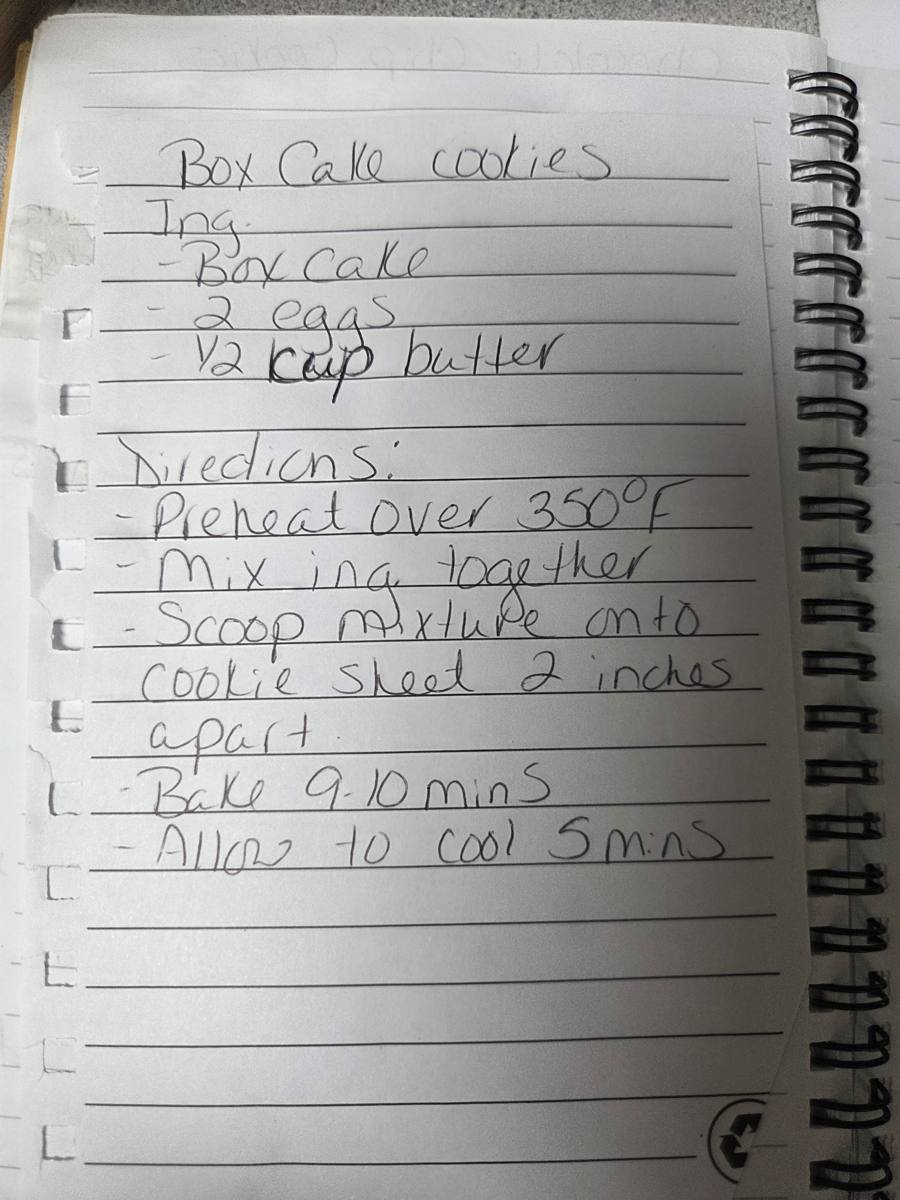 Chocolate Chip Cookies
Box Cake cookies
Ing.
- Box Cake
- 2 eggs
- 1/2 cup butter
Directions:
- Preheat over 350°F
- Mix ing. together
- Scoop mixture onto
cookie sheet 2 inches
apart.
- Bake 9-10 mins
- Allow to cool 5 mins